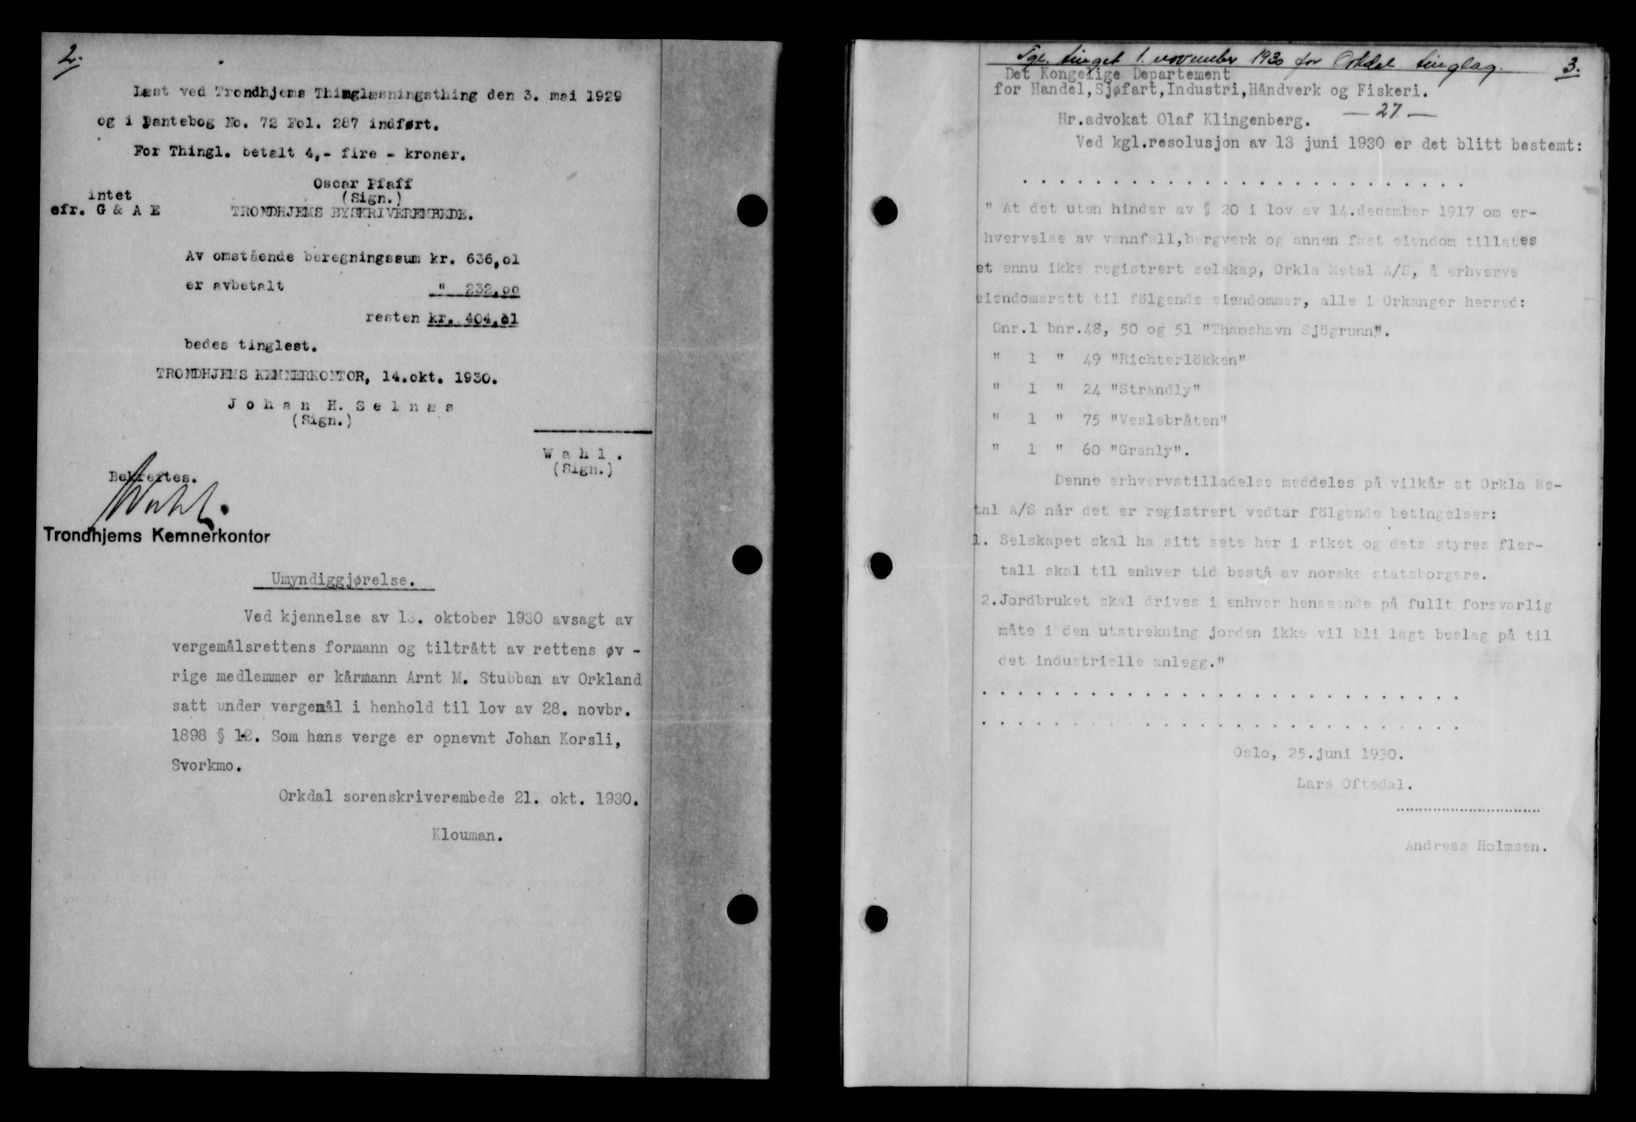 2.
Læst ved Trondhjems Thinglæsningsthing den 3. mai 1929
og i Pantebog No. 72 Fol. 287 indført.
For Thingl. betalt 4,- fire - kroner.
Oscar Pfaff
(Sign.)
intet
efr. G & A E
TRONDHJEMS BYSKRIVEREMBEDE.
Av omstående beregningssum kr. 636,01
er avbetalt " 232,00
resten kr. 404,01
bedes tinglest.
TRONDHJEMS KEMNERKONTOR, 14.okt. 1930.
Johan H. Selnæs
(Sign.)
Wahl.
(Sign.)
Bekreftes.
Wahl.
Trondhjems Kemnerkontor
Umyndiggjørelse.
Ved kjennelse av 13. oktober 1930 avsagt av
vergemålsrettens formann og tiltrått av rettens øv -
rige medlemmer er kårmann Arnt M. Stubban av Orkland
satt under vergemål i henhold til lov av 28. novbr.
1898 § 12. Som hans verge er opnevnt Johan Korsli,
Svorkmo.
Orkdal sorenskriverembede 21. okt. 1930.
Klouman.
Tgl. tinget 1. november 1930 for Orkdal tinglag. 3.
Det Kongelige Departement
for Handel,Sjøfart,Industri,Håndverk og Fiskeri.
— 27 —
Hr.advokat Olaf Klingenberg.
Ved kgl.resolusjon av 13 juni 1930 er det blitt bestemt:
. . . . . . . . . . . . . . . . . . . . . . . . .
" At det uten hinder av § 20 i lov av 14.december 1917 om er-
hvervelse av vannfall,bergverk og annen fast eiendom tillates
et ennu ikke registrert selskap, Orkla Metal A/S, å erhverve
eiendomsrett til fölgende eiendommer, alle i Orkanger herred:
Gnr.1 bnr.48, 50 og 51 "Thamshavn Sjögrunn".
" 1 " 49 "Richterlökken"
" 1 " 24 "Strandly"
" 1 " 75 "Veslebråten"
" 1 " 60 "Granly".
Denne erhvervstilladelse meddeles på vilkår at Orkla Me-
tal A/S når det er registrert vedtar fölgende betingelser:
1. Selskapet skal ha sitt sete her i riket og dets styres fler-
tall skal til enhver tid bestå av norske statsborgere.
2.Jordbruket skal drives i enhver henseende på fullt forsvarlig
måte i den utstrekning jorden ikke vil bli lagt beslag på til
det industrielle anlegg."
. . . . . . . . . . . . . . . . . . . . . . . . . . .
. . . . . . . . . . . . . . . . . . . . . . . . . . .
Oslo, 25.juni 1930.
Lars Oftedal.
..............................
Andreas Holmsen.